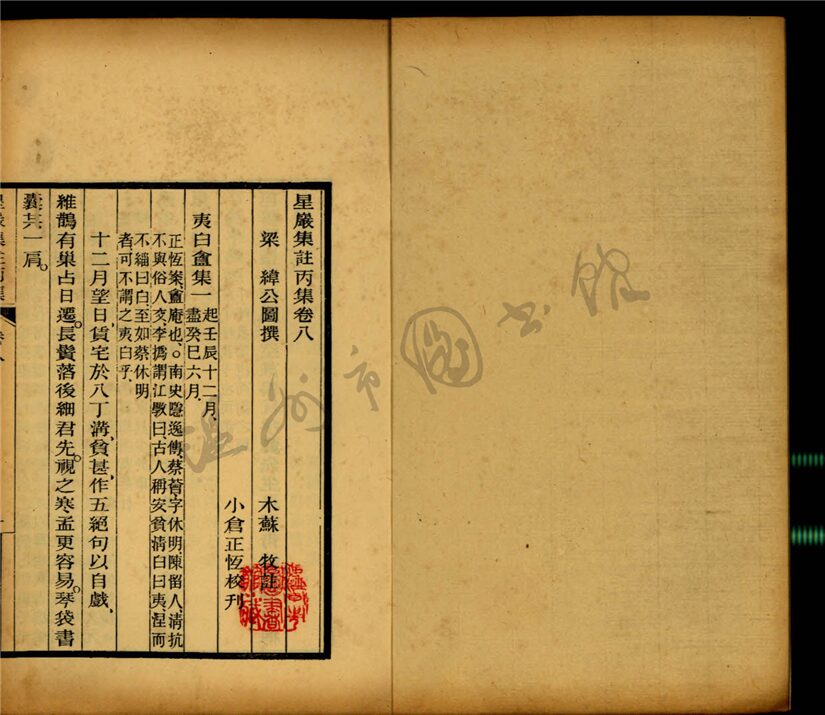 星巖集註丙集卷八
梁 緯公圖撰 木蘇 牧註
小倉正恆校刊
夷白盦集一 起壬辰十二月、盡癸巳六月、
正恆案、盦庵也、○南史隱逸傳、蔡薈、字休明、陳留人、清抗
不與俗人交、李撝謂江斅曰、古人稱安貧清白曰夷、涅而
不緇曰白、至如蔡休明
者、可不謂之夷白乎、
十二月望日、賃宅於八丁溝、貧甚、作五絕句以自戲、
維鵲有巢占日遷。長鬚落後細君先。視之寒孟更容易。琴袋書
囊共一肩。
溫州市圖書館